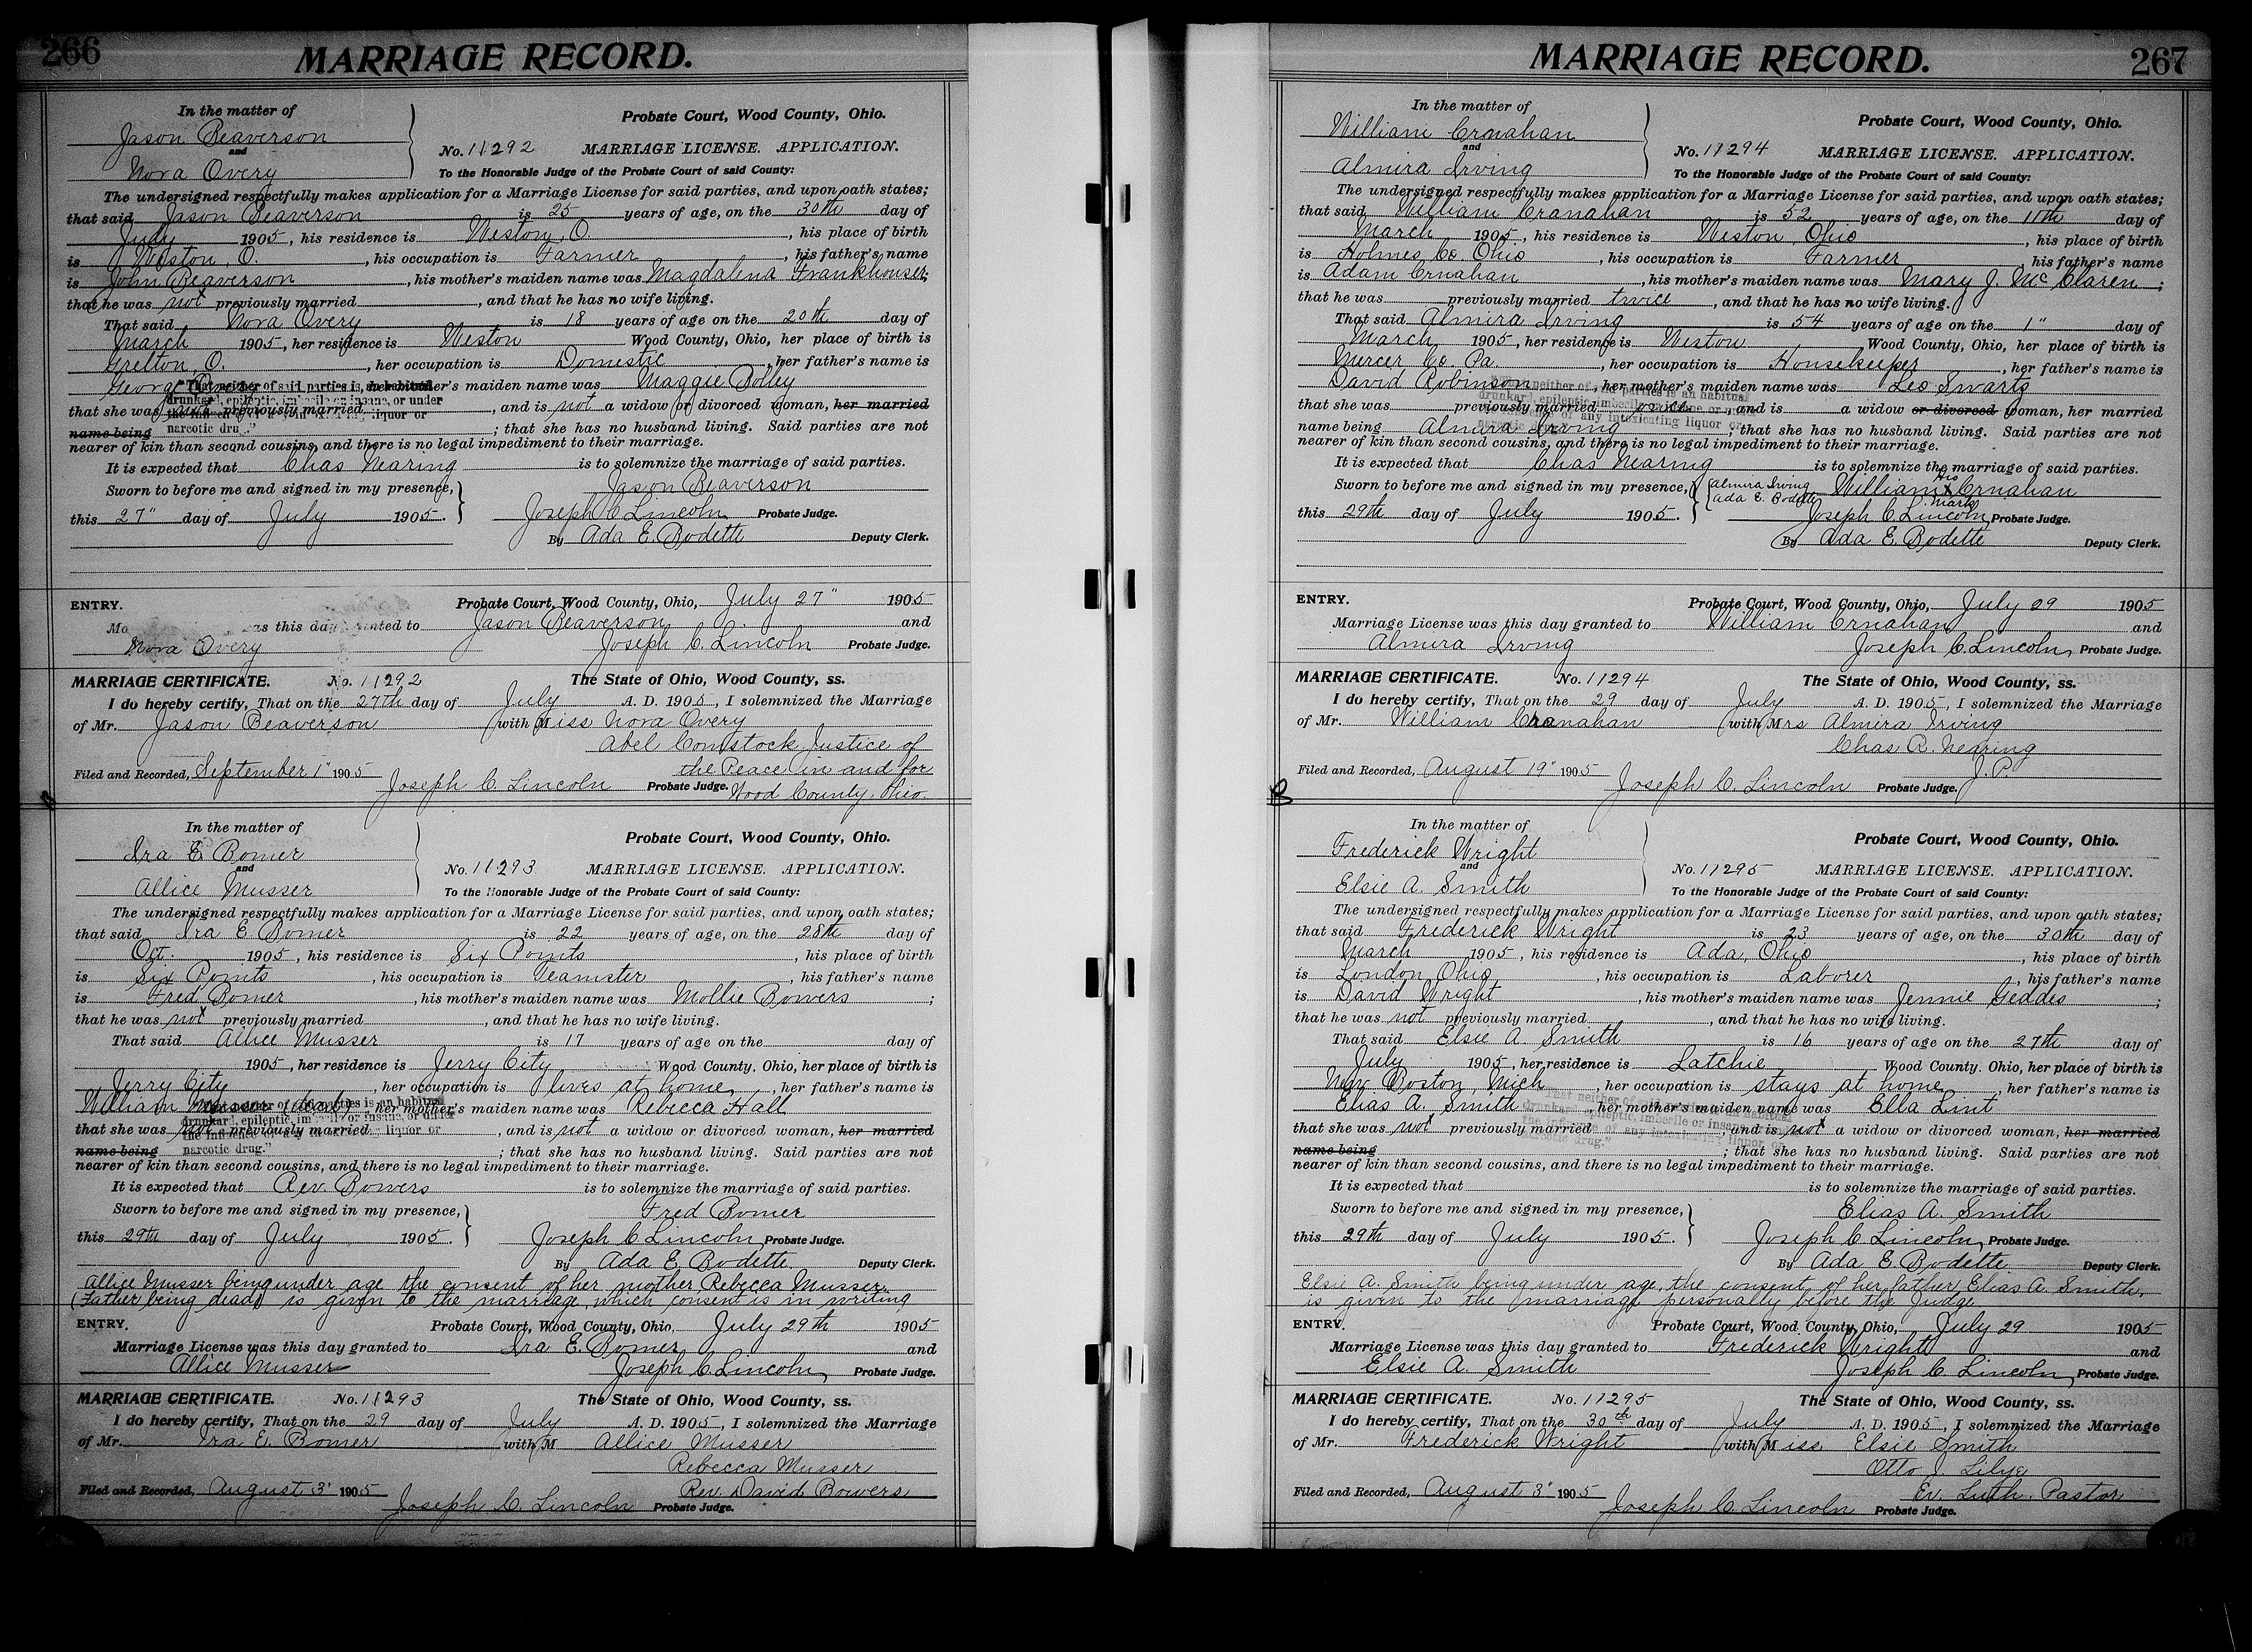 266
MARRIAGE RECORD.
In the matter of
Jason Beaverson
and
Nora Overy
Probate Court, Wood County, Ohio.
No. 11292 MARRIAGE LICENSE. APPLICATION.
To the Honorable Judge of the Probate Court of said County:
The undersigned respectfully makes application for a Marriage License for said parties, and upon oath states;
that said Jason Beaverson is 25 years of age, on the 30th day of
July 1905, his residence is Weston, O. , his place of birth
is Weston, O. , his occupation is Farmer , his father's name
is John Beaverson , his mother's maiden name was Magdalena Frankhouser;
that he was not previously married , and that he has no wife living.
That said Nora Overy is 18 years of age on the 20th day of
March 1905, her residence is Weston Wood County, Ohio, her place of birth is
Grelton, O. , her occupation is Domestic , her father's name is
George her mother's maiden name was Maggie Bolley
"That neither of said parties is an habitual
drunkard, epileptic, imbecile or insane, or under
the influence of any intoxicating liquor or
narcotic drug."
that she was not previously married , and is not a widow or divorced woman, her married
name being ; that she has no husband living. Said parties are not
nearer of kin than second cousins, and there is no legal impediment to their marriage.
It is expected that Chas Nearing is to solemnize the marriage of said parties.
Sworn to before me and signed in my presence, Jason Beaverson
this 27" day of July 1905. Joseph C Lincoln Probate Judge.
By Ada E. Bodette Deputy Clerk.
ENTRY. Probate Court, Wood County, Ohio, July 27" 1905
as this day granted to Jason Beaverson and
Nora Overy Joseph C. Lincoln Probate Judge.
MARRIAGE CERTIFICATE. No. 11292 The State of Ohio, Wood County, ss.
I do hereby certify, That on the 27th day of July A. D. 1905, I solemnized the Marriage
of Mr. Jason Beaverson with Miss Nora Overy
Abel Comstock Justice of
the Peace in and for
Filed and Recorded, September 1" 1905 Joseph C. Lincoln Probate Judge. Wood County, Ohio.
In the matter of
Ira E. Bomer
and
Allice Musser
Probate Court, Wood County, Ohio.
No. 11293 MARRIAGE LICENSE. APPLICATION.
To the Honorable Judge of the Probate Court of said County:
The undersigned respectfully makes application for a Marriage License for said parties, and upon oath states;
that said Ira E. Bomer is 22 years of age, on the 28th day of
Oct. 1905, his residence is Six Points , his place of birth
is Six Points , his occupation is Teamster , his father's name
is Fred Bomer , his mother's maiden name was Mollie Bowers ;
that he was not previously married , and that he has no wife living.
That said Allice Musser is 17 years of age on the day of
1905, her residence is Jerry City Wood County, Ohio, her place of birth is
Jerry City , her occupation is lives at home , her father's name is
William Musser (dead) , her mother's maiden name was Rebecca Hall
"That neither of said parties is an habitual
drunkard, epileptic, imbecile or insane, or under
the influence of any intoxicating liquor or
narcotic drug."
that she was not previously married , and is not a widow or divorced woman, her married
name being ; that she has no husband living. Said parties are not
nearer of kin than second cousins, and there is no legal impediment to their marriage.
It is expected that Rev. Bowers is to solemnize the marriage of said parties.
Sworn to before me and signed in my presence, Fred Bomer
this 29th day of July 1905. Joseph C Lincoln, Probate Judge.
By Ada E. Bodette Deputy Clerk.
Allice Musser being under age the consent of her mother Rebecca Musser
(Father being dead) is given to the marriage, which consent is in writing
ENTRY. Probate Court, Wood County, Ohio, July 29th 1905
Marriage License was this day granted to Ira E. Bomer and
Allice Musser Joseph C Lincoln, Probate Judge.
MARRIAGE CERTIFICATE. No. 11293 The State of Ohio, Wood County, ss.
I do hereby certify, That on the 29 day of July A. D. 1905, I solemnized the Marriage
of Mr. Ira E. Bomer with M Allice Musser
Rebecca Musser
Rev. David Bowers
Filed and Recorded, August 3" 1905 Joseph C. Lincoln Probate Judge.
MARRIAGE RECORD.
267
In the matter of
William Crnahan
and
Almira Irving
Probate Court, Wood County, Ohio.
No. 11294 MARRIAGE LICENSE. APPLICATION.
To the Honorable Judge of the Probate Court of said County:
The undersigned respectfully makes application for a Marriage License for said parties, and upon oath states;
that said William Cranahan is 52 years of age, on the 11th day of
March 1905, his residence is Weston, Ohio , his place of birth
is Holmes Co. Ohio , his occupation is Farmer , his father's name
is Adam Crnahan , his mother's maiden name was Mary J. McClaren ;
that he was previously married twice , and that he has no wife living.
That said Almira Irving is 54 years of age on the 1" day of
March 1905, her residence is Weston Wood County, Ohio, her place of birth is
Mercer Co. Pa. , her occupation is Housekeeper , her father's name is
David Robinson , her mother's maiden name was Leo Swartz
"That neither of said parties is an habitual
drunkard, epileptic, imbecile or insane or under
the influence of any intoxicating liquor or
narcotic drug."
that she was previously married once and is a widow or divorced woman, her married
name being Almira Irving ; that she has no husband living. Said parties are not
nearer of kin than second cousins, and there is no legal impediment to their marriage.
It is expected that Chas Nearing is to solemnize the marriage of said parties.
Sworn to before me and signed in my presence, Almira Irving Ada E. Bodette William his X mark Crnahan
this 29th day of July 1905. Joseph C Lincoln, Probate Judge.
By Ada E. Bodette Deputy Clerk.
ENTRY. Probate Court, Wood County, Ohio, July 29 1905
Marriage License was this day granted to William Crnahan and
Almira Irving Joseph C. Lincoln, Probate Judge.
MARRIAGE CERTIFICATE. No. 11294 The State of Ohio, Wood County, ss.
I do hereby certify, That on the 29 day of July A. D. 1905, I solemnized the Marriage
of Mr. William Cranahan with Mrs Almira Irving
Chas R. Nearing
J. P.
Filed and Recorded, August 19" 1905 Joseph C. Lincoln Probate Judge.
In the matter of
Frederick Wright
and
Elsie A. Smith
Probate Court, Wood County, Ohio.
No. 11295 MARRIAGE LICENSE. APPLICATION.
To the Honorable Judge of the Probate Court of said County:
The undersigned respectfully makes application for a Marriage License for said parties, and upon oath states;
that said Frederick Wright is 23 years of age, on the 30th day of
March 1905, his residence is Ada, Ohio , his place of birth
is London, Ohio , his occupation is Laborer , his father's name
is David Wright , his mother's maiden name was Jennie Geddes ;
that he was not previously married , and that he has no wife living.
That said Elsie A. Smith is 16 years of age on the 27th day of
July 1905, her residence is Latchie Wood County, Ohio, her place of birth is
New Boston, Mich , her occupation is stays at home , her father's name is
Elias A. Smith , her mother's maiden name was Ella Lint
"That neither of said parties is an habitual
drunkard, epileptic, imbecile or insane, or under
the influence of any intoxicating liquor, or
narcotic drug."
that she was not previously married , and is not a widow or divorced woman, her married
name being ; that she has no husband living. Said parties are not
nearer of kin than second cousins, and there is no legal impediment to their marriage.
It is expected that is to solemnize the marriage of said parties.
Sworn to before me and signed in my presence, Elias A. Smith
this 29th day of July 1905. Joseph C Lincoln, Probate Judge.
By Ada E Bodette Deputy Clerk.
Elsie A. Smith being under age, the consent of her father, Elias A. Smith,
is given to the marriage personally before the Judge
ENTRY. Probate Court, Wood County, Ohio, July 29 1905
Marriage License was this day granted to Frederick Wright and
Elsie A. Smith Joseph C. Lincoln, Probate Judge.
MARRIAGE CERTIFICATE. No. 11295 The State of Ohio, Wood County, ss.
I do hereby certify, That on the 30th day of July A. D. 1905, I solemnized the Marriage
of Mr. Frederick Wright with Miss Elsie Smith
Otto J. Lilye
Ev. Luth. Pastor
Filed and Recorded, August 3" 1905 Joseph C. Lincoln Probate Judge.